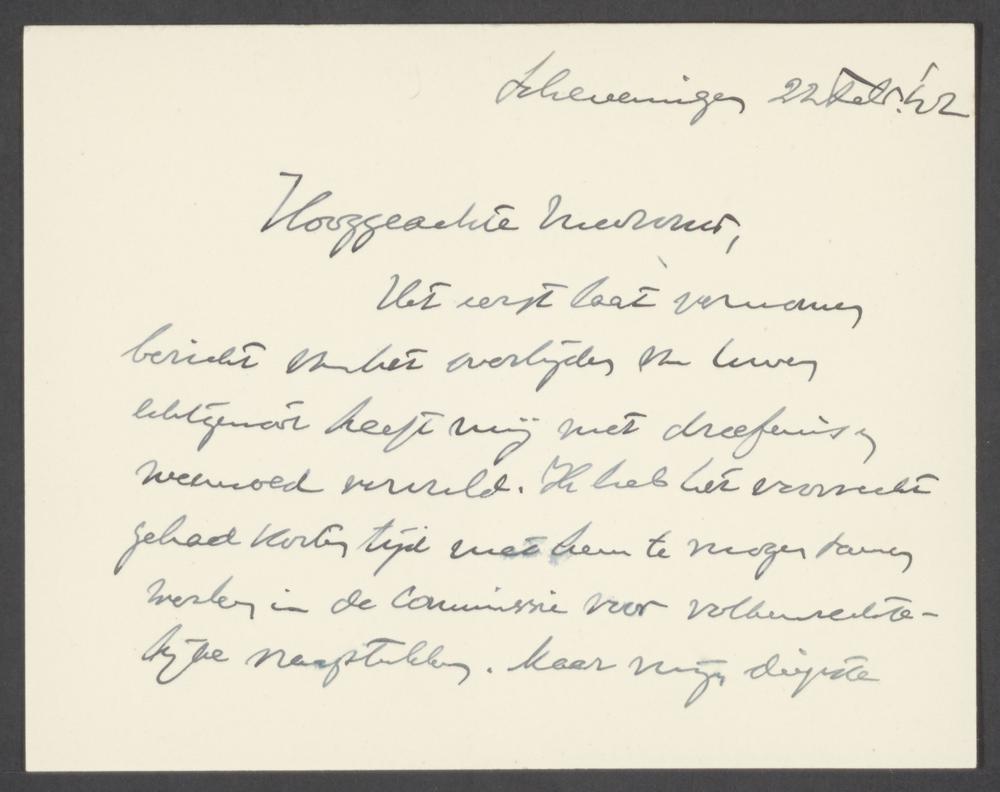 Scheveningen 22 Febr. '42
Hooggeachte Mevrouw,
Het eerst laat vernomen
bericht van het overlijden van Uwen
echtgenoot heeft mij met droefenis en
weemoed vervuld. Ik heb het voorrecht
gehad korten tijd met hem te mogen samen
werken in de Commissie voor volkenrechte-
lijke vraagstukken. Maar mijn diepste